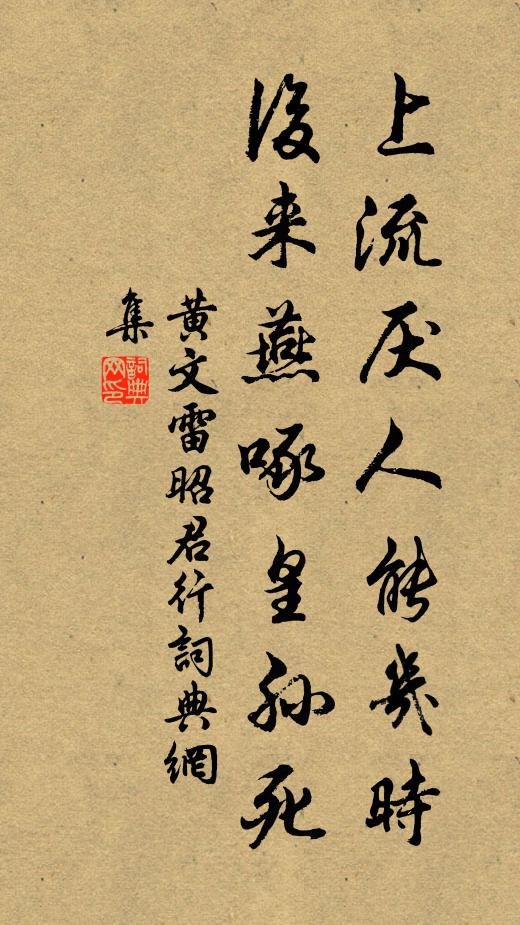 上流厌人能幾時
後来燕啄皇孙死
黄文雷昭君行詞典網
集
詞典
网印